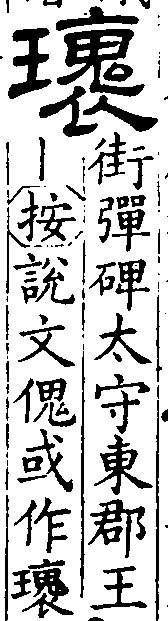 瓌
街彈碑太守東郡王
｜按說文傀或作瓌